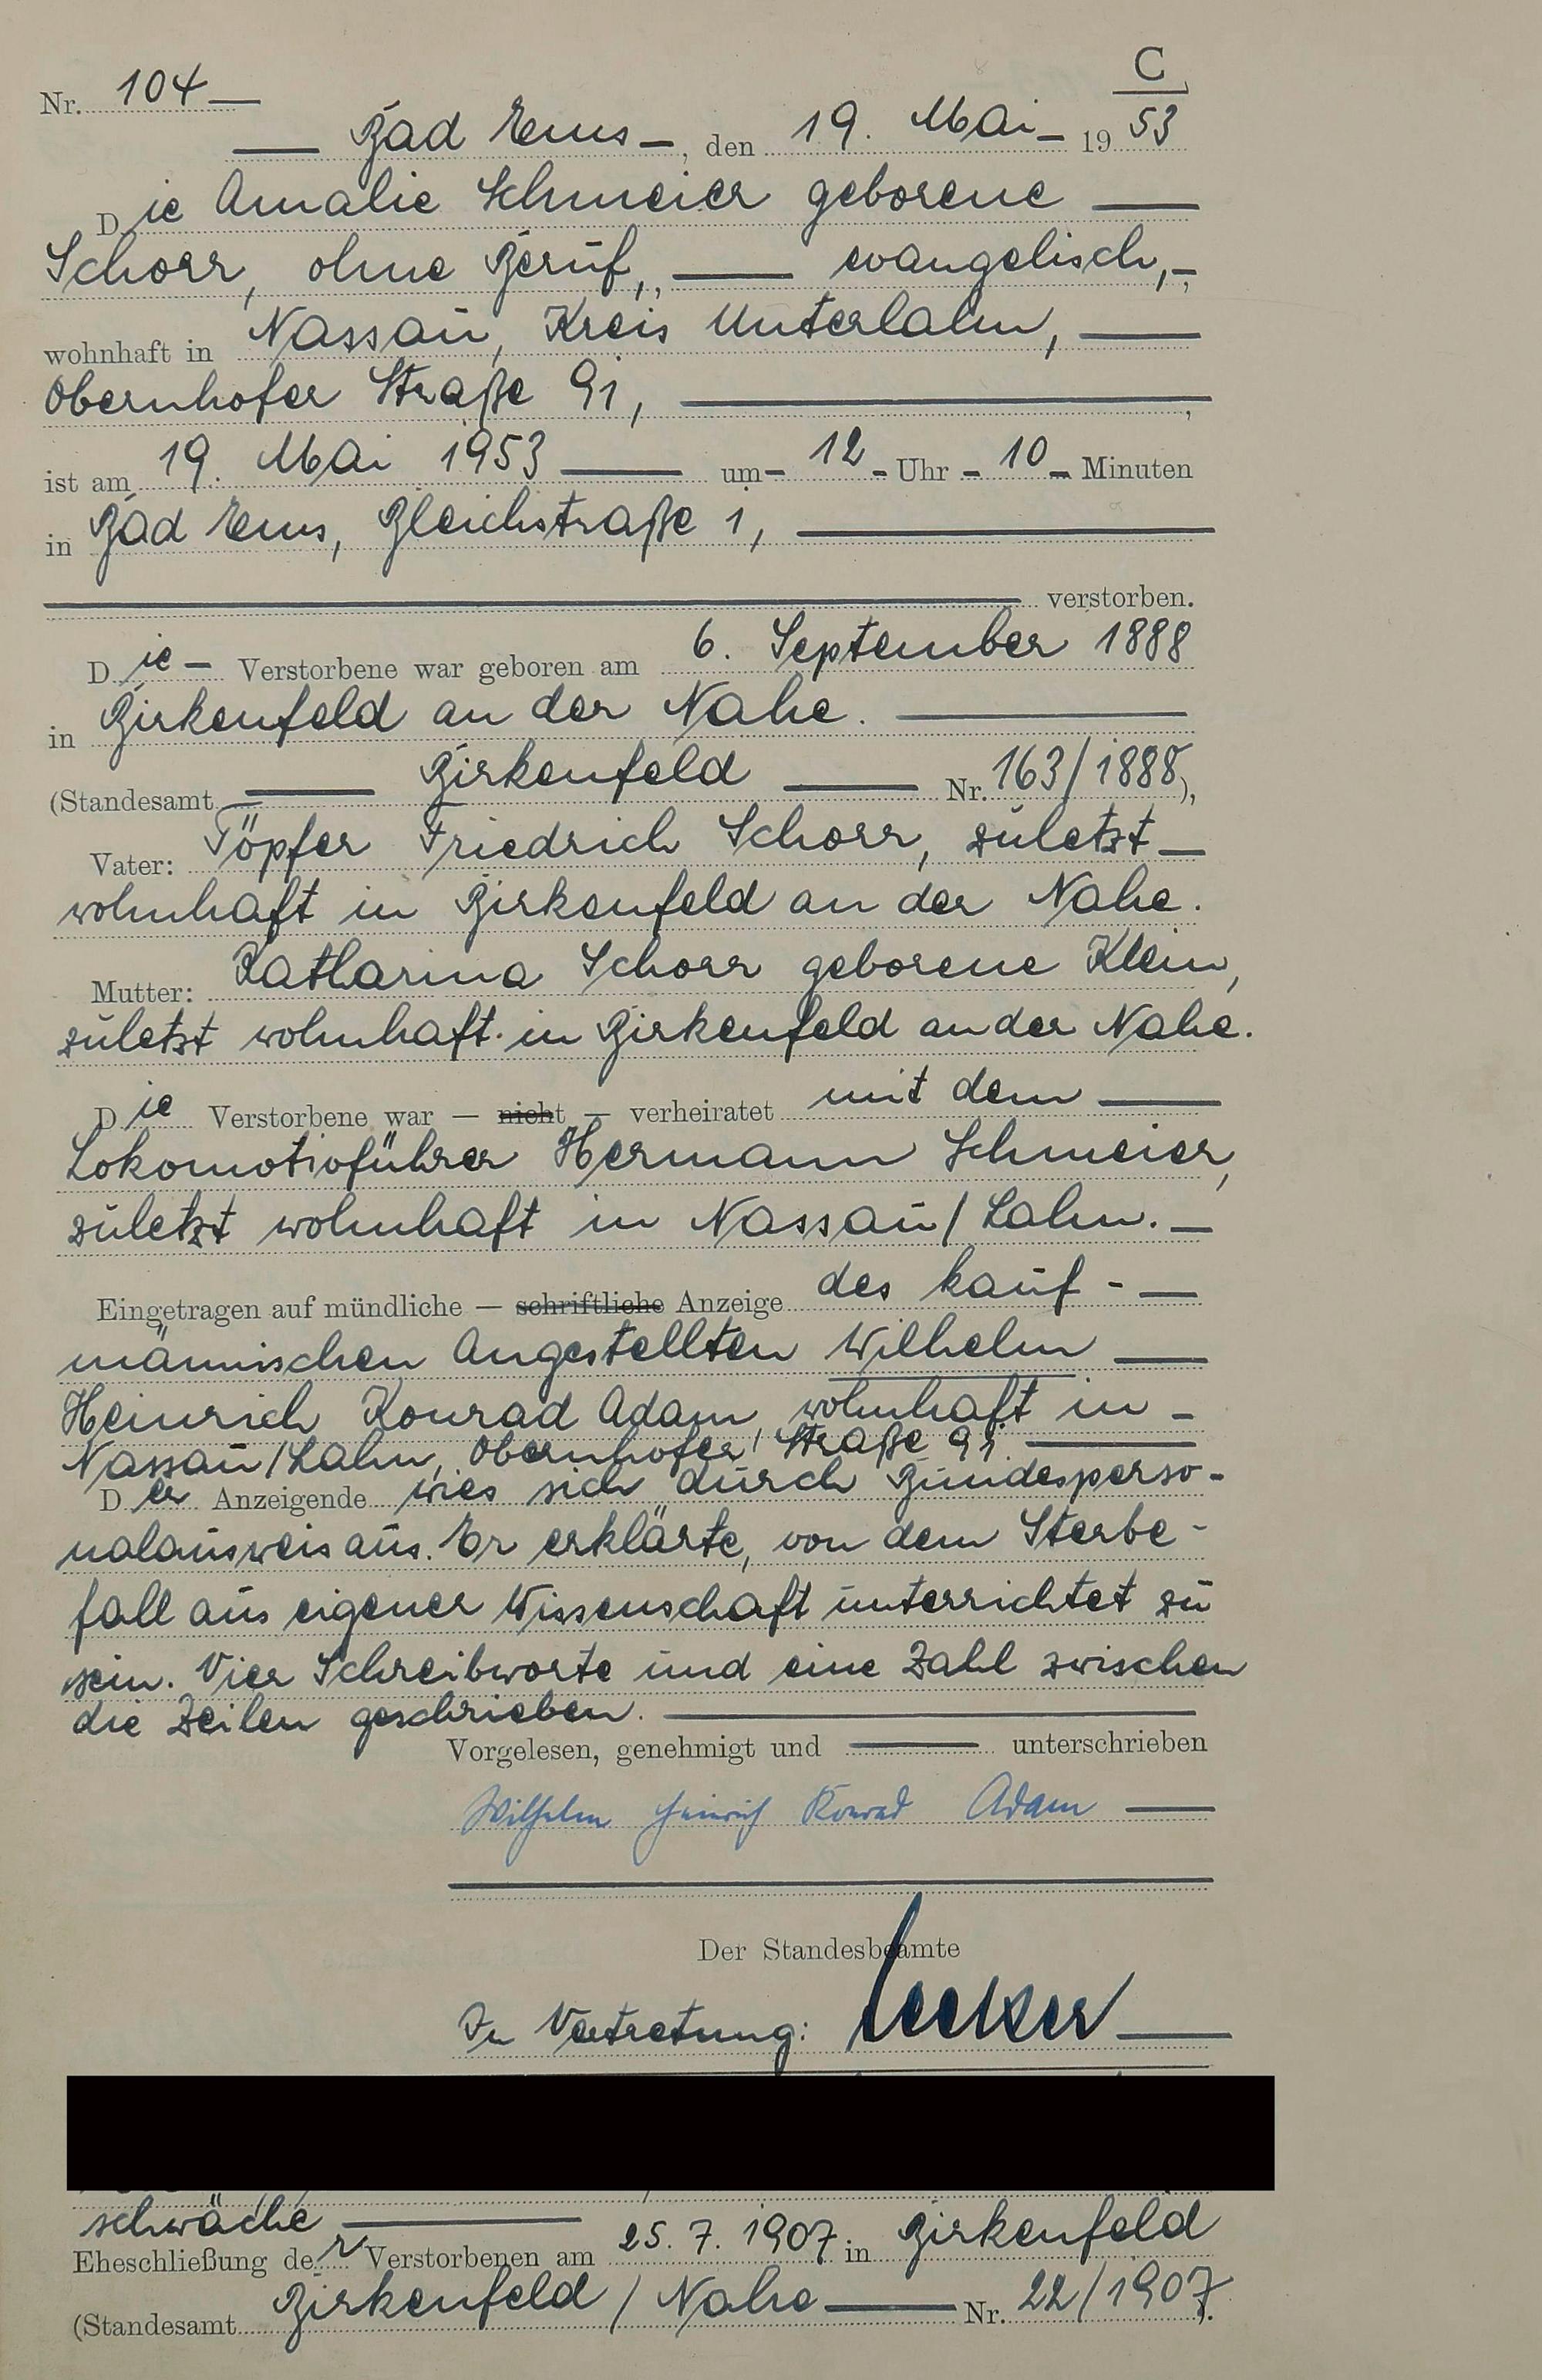 C
Nr. 104
Bad Ems, den 19. Mai 19 53
Die Amalie Schmeier geborene
Schorr, ohne Beruf, evangelisch,
wohnhaft in Nassau, Kreis Unterlahn,
Obernhofer Straße 91,
ist am 19. Mai 1953 um 12 Uhr 10 Minuten
in Bad Ems, Bleichstraße 1,
verstorben.
Die Verstorbene war geboren am 6. September 1888
in Birkenfeld an der Nahe.
(Standesamt Birkenfeld Nr. 163/1888),
Vater: Töpfer Friedrich Schorr, zuletzt
wohnhaft in Birkenfeld an der Nahe.
Mutter: Katharina Schorr geborene Klein,
zuletzt wohnhaft in Birkenfeld an der Nahe.
Die Verstorbene war — nicht — verheiratet mit dem
Lokomotivführer Hermann Schmeier,
zuletzt wohnhaft in Nassau/Lahn.
Eingetragen auf mündliche — schriftliche Anzeige des kauf-
männischen Angestellten Wilhelm
Heinrich Konrad Adam, wohnhaft in
Nassau/Lahn, Obernhofer Straße 91.
Der Anzeigende wies sich durch Bundesperso-
nalausweis aus. Er erklärte, von dem Sterbe-
fall aus eigener Wissenschaft unterrichtet zu
sein. Vier Schreibworte und eine Zahl zwischen
die Zeilen geschrieben.
Vorgelesen, genehmigt und unterschrieben
Wilhelm Heinrich Konrad Adam
Der Standesbeamte
In Vertretung:
schwäche
Eheschließung der Verstorbenen am 25. 7. 1907 in Birkenfeld
(Standesamt Birkenfeld / Nahe Nr. 22/1907).